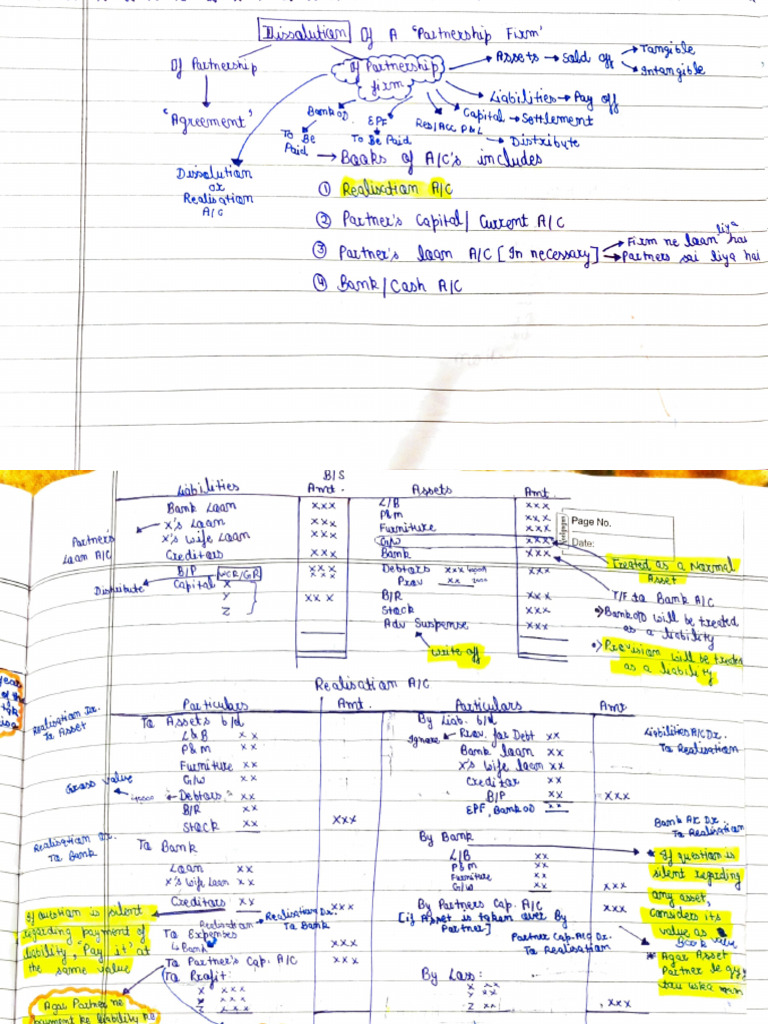 Dissolution Of A 'Partnership Firm'
Of Partnership
Of Partnership firm
Assets → Sold off → Tangible
→ Intangible
Liabilities → Pay off
Capital → Settlement
'Agreement'
Bank OD
To Be Paid
EPF
To Be Paid
Res/Acc P&L
→ Distribute
Dissolution
or
Realisation
A/C
→ Books of A/C's includes
① Realisation A/C
② Partner's Capital/Current A/C
③ Partner's loan A/C [In necessary] → Firm ne loan liya hai
→ Partners sai liya hai
④ Bank/Cash A/C
B/S
Liabilities Amt. Assets Amt.
Bank Loan xxx L/B xxx
X's Loan xxx P&M xxx
X's Wife Loan xxx Furniture xxx
G/W xxx
Creditors xxx Bank xxx
Partner's
Loan A/C
B/P xxx Debtors xxx
WCR/GR xxx Prov xx xxx
Distribute
Capital X B/R xxx
Y xxx Stock xxx
Z Adv Suspense xxx
Write off
Page No.
Date:
Treated as a Normal
Asset
T/F to Bank A/C
Bank OD will be treated
as a liability
Provision will be treated
as a liability
Realisation A/C
Particulars Amt. Particulars Amt
Realisation Dr.
To Asset
To Assets b/d
L&B xx
P&M xx
Furniture xx
G/W xx
Gross value
Debtors xx
B/R xx
Stock xx xxx
Realisation Dr.
To Bank
To Bank
Loan xx
X's Wife Loan xx
Creditors xx xxx
If question is silent
regarding payment of
liability, "Pay it" at
the same value
Realisation Dr.
To Bank
To Expenses
Bank xxx
To Partner's Cap. A/C xxx
To Profit:
X xxx
Y xxx
Z xxx
Agar Partner ne
payment ke liability ke
By Liab. b/d
Ignore
Prov. for Debt xx
Bank loan xx
X's Wife loan xx
Creditor xx
B/P xx
EPF, Bank OD xx xxx
Liabilities A/C Dr.
To Realisation
By Bank
L/B xx
P&M xx
Furniture xx
G/W xx xxx
Bank A/C Dr
To Realisation
* If question is
silent regarding
any asset,
considers its
value as
Book value
By Partners Cap. A/C xxx
[if Asset is taken over By
Partner]
Partner Cap. A/C Dr.
To Realisation
* Agar Asset
Partner le
By Loss:
X xx
Y xx
Z xx xxx